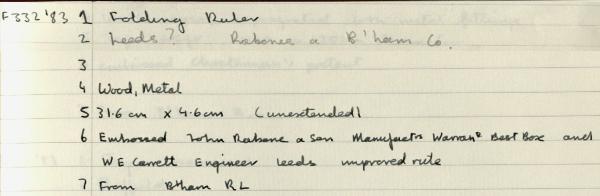 F332'83 1 Folding Ruler
2 Leeds? Rabone a B'ham Co.
3
4 Wood, Metal
5 31.6 cm x 4.6cm (unextended)
6 Embossed John Rabone a Son Manufactrs Warran^d Best Box and
WE Carrett Engineer Leeds improved rule
7 From B'ham RL